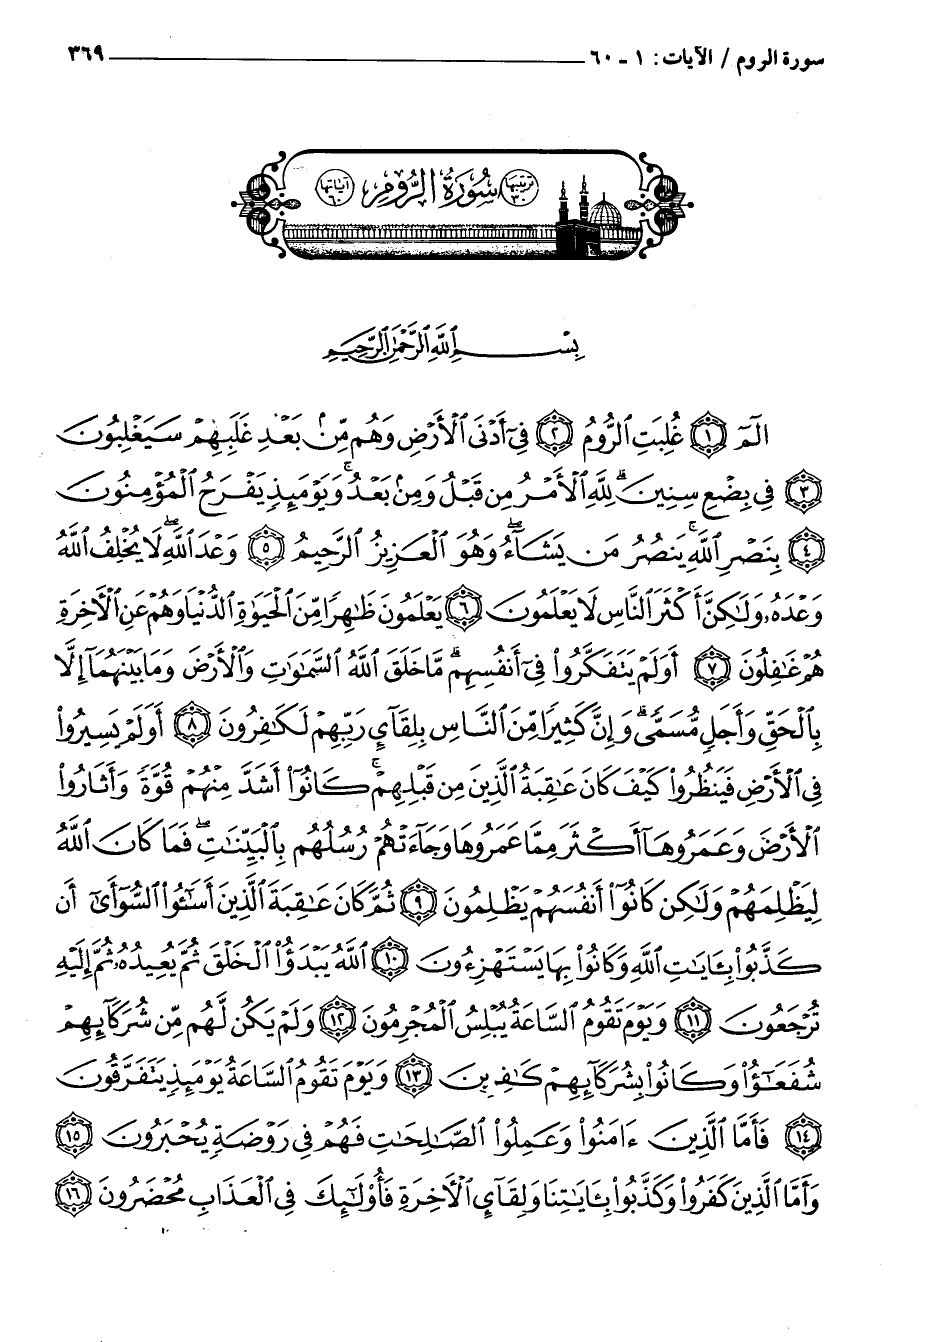 سورة الروم / الآيات: ١ - ٦٠ ٣٦٩
ترتيبها ٣٠ سُورَةُ الرُّومِ آياتها ٦٠
بِسْمِ ٱللَّهِ ٱلرَّحْمَٰنِ ٱلرَّحِيمِ
الٓمٓ ﴿١﴾ غُلِبَتِ ٱلرُّومُ ﴿٢﴾ فِىٓ أَدْنَى ٱلْأَرْضِ وَهُم مِّنۢ بَعْدِ غَلَبِهِمْ سَيَغْلِبُونَ
﴿٣﴾ فِى بِضْعِ سِنِينَۗ لِلَّهِ ٱلْأَمْرُ مِن قَبْلُ وَمِنۢ بَعْدُۚ وَيَوْمَئِذٍ يَفْرَحُ ٱلْمُؤْمِنُونَ
﴿٤﴾ بِنَصْرِ ٱللَّهِۚ يَنصُرُ مَن يَشَآءُۖ وَهُوَ ٱلْعَزِيزُ ٱلرَّحِيمُ ﴿٥﴾ وَعْدَ ٱللَّهِۖ لَا يُخْلِفُ ٱللَّهُ
وَعْدَهُۥ وَلَٰكِنَّ أَكْثَرَ ٱلنَّاسِ لَا يَعْلَمُونَ ﴿٦﴾ يَعْلَمُونَ ظَٰهِرًا مِّنَ ٱلْحَيَوٰةِ ٱلدُّنْيَا وَهُمْ عَنِ ٱلْأَخِرَةِ
هُمْ غَٰفِلُونَ ﴿٧﴾ أَوَلَمْ يَتَفَكَّرُوا۟ فِىٓ أَنفُسِهِمۗ مَّا خَلَقَ ٱللَّهُ ٱلسَّمَٰوَٰتِ وَٱلْأَرْضَ وَمَا بَيْنَهُمَآ إِلَّا
بِٱلْحَقِّ وَأَجَلٍ مُّسَمًّىۗ وَإِنَّ كَثِيرًا مِّنَ ٱلنَّاسِ بِلِقَآئِ رَبِّهِمْ لَكَٰفِرُونَ ﴿٨﴾ أَوَلَمْ يَسِيرُوا۟
فِى ٱلْأَرْضِ فَيَنظُرُوا۟ كَيْفَ كَانَ عَٰقِبَةُ ٱلَّذِينَ مِن قَبْلِهِمْۚ كَانُوٓا۟ أَشَدَّ مِنْهُمْ قُوَّةً وَأَثَارُوا۟
ٱلْأَرْضَ وَعَمَرُوهَآ أَكْثَرَ مِمَّا عَمَرُوهَا وَجَآءَتْهُمْ رُسُلُهُم بِٱلْبَيِّنَٰتِۖ فَمَا كَانَ ٱللَّهُ
لِيَظْلِمَهُمْ وَلَٰكِن كَانُوٓا۟ أَنفُسَهُمْ يَظْلِمُونَ ﴿٩﴾ ثُمَّ كَانَ عَٰقِبَةَ ٱلَّذِينَ أَسَٰٓـُٔوا۟ ٱلسُّوٓأَىٰٓ أَن
كَذَّبُوا۟ بِـَٔايَٰتِ ٱللَّهِ وَكَانُوا۟ بِهَا يَسْتَهْزِءُونَ ﴿١٠﴾ ٱللَّهُ يَبْدَؤُا۟ ٱلْخَلْقَ ثُمَّ يُعِيدُهُۥ ثُمَّ إِلَيْهِ
تُرْجَعُونَ ﴿١١﴾ وَيَوْمَ تَقُومُ ٱلسَّاعَةُ يُبْلِسُ ٱلْمُجْرِمُونَ ﴿١٢﴾ وَلَمْ يَكُن لَّهُم مِّن شُرَكَآئِهِمْ
شُفَعَٰٓؤُا۟ وَكَانُوا۟ بِشُرَكَآئِهِمْ كَٰفِرِينَ ﴿١٣﴾ وَيَوْمَ تَقُومُ ٱلسَّاعَةُ يَوْمَئِذٍ يَتَفَرَّقُونَ
﴿١٤﴾ فَأَمَّا ٱلَّذِينَ ءَامَنُوا۟ وَعَمِلُوا۟ ٱلصَّٰلِحَٰتِ فَهُمْ فِى رَوْضَةٍ يُحْبَرُونَ ﴿١٥﴾
وَأَمَّا ٱلَّذِينَ كَفَرُوا۟ وَكَذَّبُوا۟ بِـَٔايَٰتِنَا وَلِقَآئِ ٱلْأَخِرَةِ فَأُو۟لَٰٓئِكَ فِى ٱلْعَذَابِ مُحْضَرُونَ ﴿١٦﴾